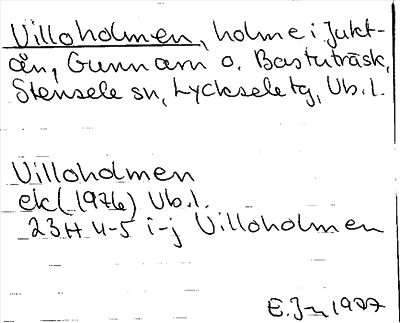 Villoholmen, holme i Jukt-
ån, Gunnarn o. Basturträsk,
Stensele sn, Lycksele tg, Vb.l.
Villoholmen
ek (1976) Vb.l.
23H 4-5 i-j Villoholmen
1977